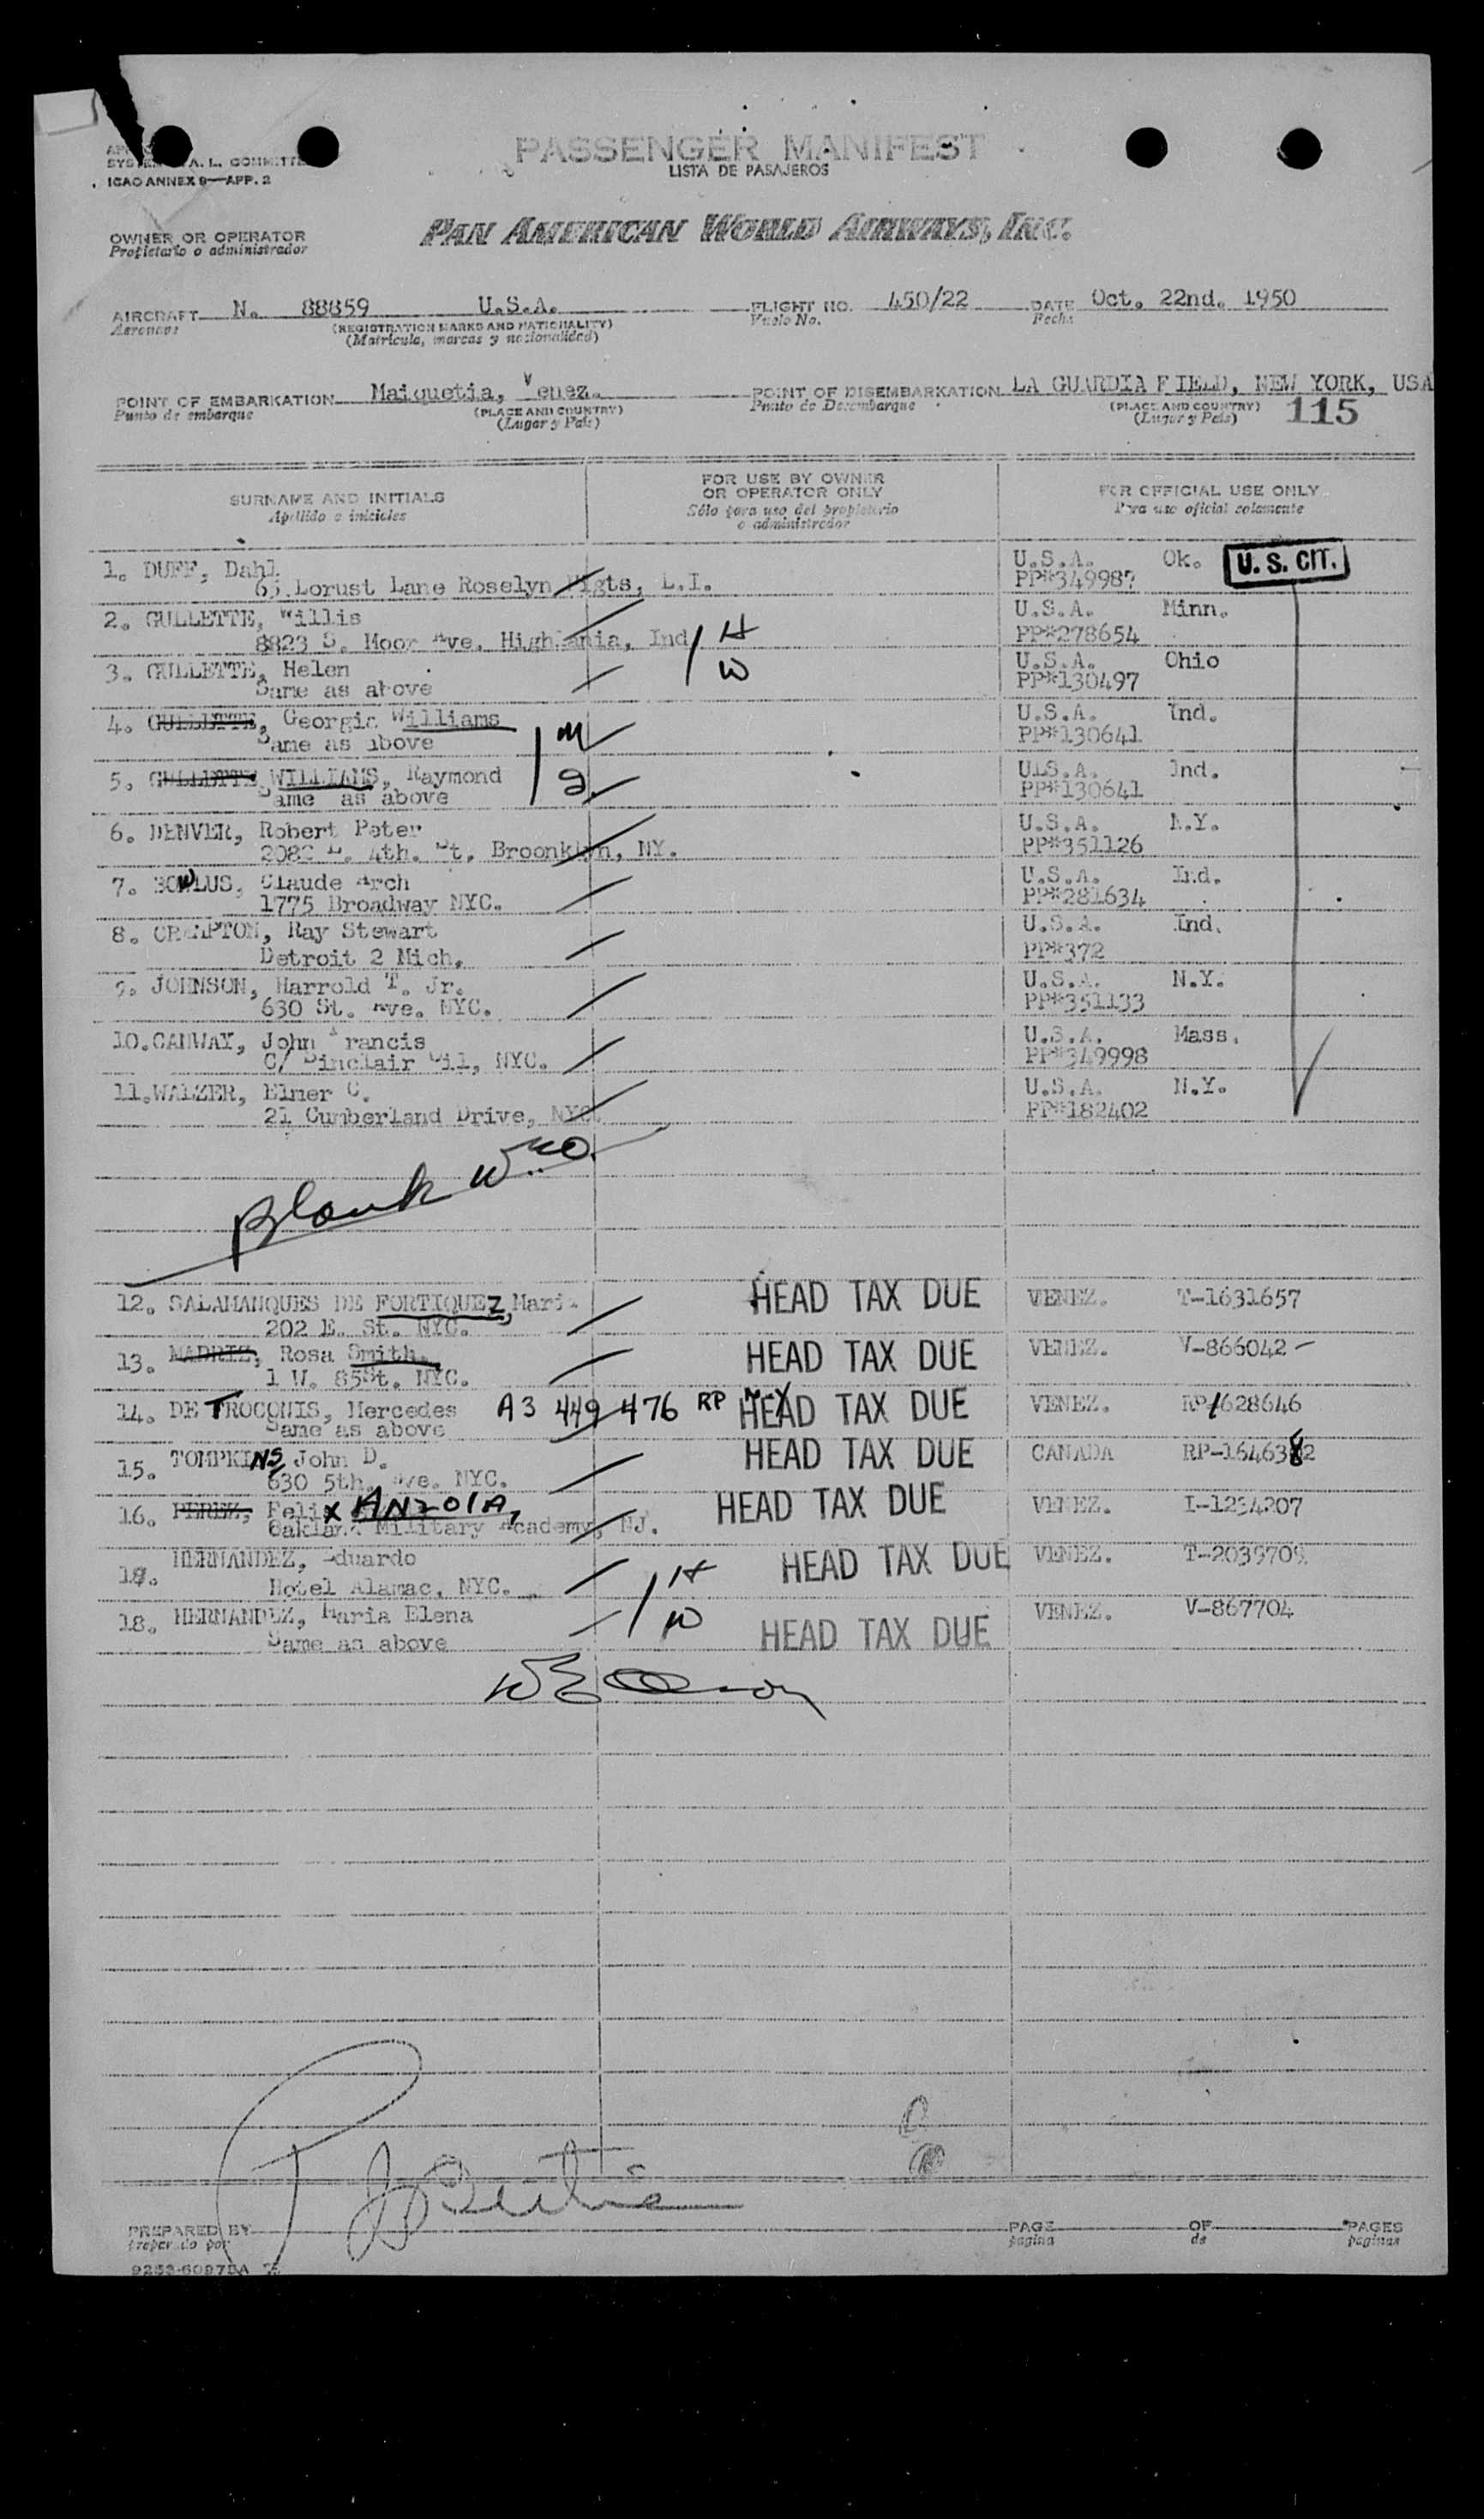 PASSENGER MANIFEST
LISTA DE PASAJEROS
A. L. COMMITTE
ICAO ANNEX 9—APP. 2
PAN AMERICAN WORLD AIRWAYS, INC.
OWNER OR OPERATOR
Propietario o administrador
AIRCRAFT N. 88859 U.S.A. FLIGHT NO. 450/22 DATE Oct. 22nd. 1950
Aeronave (REGISTRATION MARKS AND NATIONALITY) Vuelo No. Fecha
(Matricula, marcas y nacionalidad)
POINT OF EMBARKATION Maiquetia, Venez. POINT OF DISEMBARKATION LA GUARDIA FIELD, NEW YORK, USA
Punto de embarque (PLACE AND COUNTRY) Punto de Desembarque (PLACE AND COUNTRY) 115
(Lugar y País) (Lugar y País)
SURNAME AND INITIALS FOR USE BY OWNER OR OPERATOR ONLY FOR OFFICIAL USE ONLY
Apellido e iniciales Sólo para uso del propietario o administrador Para uso oficial solamente
1. DUFF, Dahl U.S.A. Ok. U. S. CIT.
65 Lorust Lane Roselyn Higts, L.I. PP*349987
2. GULLETTE, Willis U.S.A. Minn.
8823 S. Moor Ave. Highlania, Ind H PP*278654
3. GULLETTE, Helen W U.S.A. Ohio
Same as above PP*130497
4. GULLETTE, Georgia Williams U.S.A. Ind.
Same as above M PP*130641
5. GULLETTE WILLIAMS, Raymond U.S.A. Ind.
Same as above PP*130641
6. DENVER, Robert Peter U.S.A. N.Y.
4th. St. Broonklyn, NY. PP*351126
7. BOWLUS, Claude Arch U.S.A. Ind.
1775 Broadway NYC. PP*281634
8. Ray Stewart U.S.A. Ind.
Detroit 2 Mich. PP*372
9. JOHNSON, Harrold T. Jr. U.S.A. N.Y.
630 St. Ave. NYC. PP*351133
10.CANWAY, John Francis U.S.A. Mass.
C/ Sinclair Oil, NYC. PP*349998
11.WALZER, Elmer C. U.S.A. N.Y.
21 Cumberland Drive, NYC. PP*182402
Blank
12. SALAMANQUES DE FORTIQUEZ, Maria HEAD TAX DUE VENEZ. T-1631657
202 E. St. NYC.
13. MADRIZ, Rosa Smith HEAD TAX DUE VENEZ. V-866042
1 W. 85St. NYC.
14. DE TROCONIS, Mercedes A3 449 476 RP HEAD TAX DUE VENEZ. RP-1628646
Same as above
15. TOMPKINS, John D. HEAD TAX DUE CANADA RP-1646382
630 5th. Ave. NYC.
16. PEREZ, Felix ANZOLA, HEAD TAX DUE VENEZ. I-1234207
Oakland Military Academy, NJ.
HERNANDEZ, Eduardo HEAD TAX DUE VENEZ. T-2039709
Hotel Alamac, NYC. H
18. HERNANDEZ, Maria Elena W HEAD TAX DUE VENEZ. V-867704
Same as above
PREPARED BY PAGE OF PAGES
Preparado por pagina de paginas